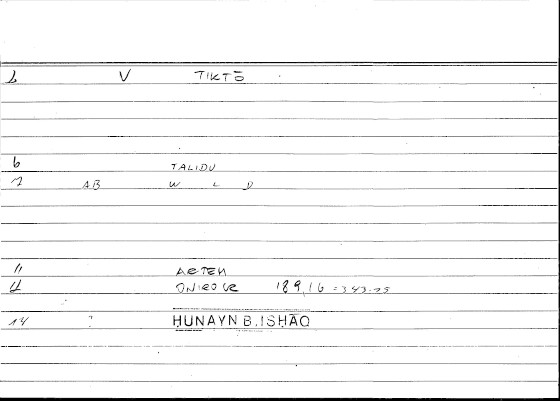 2 V TIKTŌ
6 TALIDU
7 AB W L D
11 ARTEM
12 ONIROCR 189,16 = 343.15
14 HUNAYN B. ISHĀQ